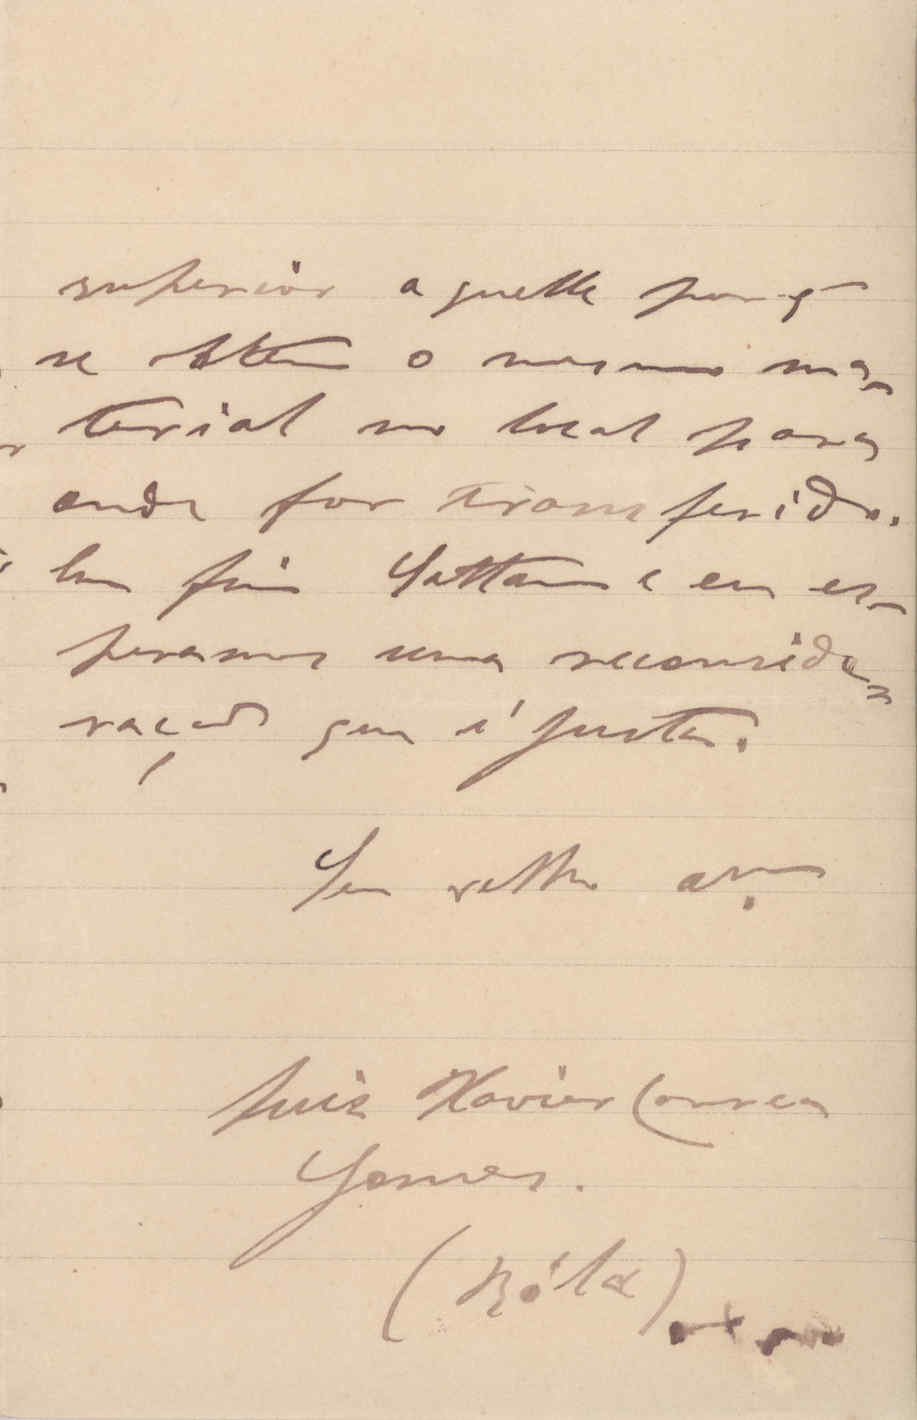 superior aquelle por q
se obtem o mesmo ma-
terial no local para
onde for transferido.
Em fim Gaffaree e eu es-
peramos uma reconside-
ração que é justa.
Seu velho amº
Luis Xavier Correa
Gomes.
(Bóla)